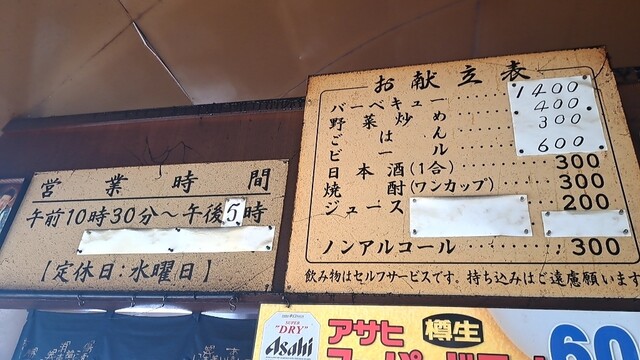 お献立表
バーベキュー 1400
野菜炒め 400
ごはん 300
ビール 600
日本酒(1合) 300
焼酎(ワンカップ) 300
ジュース 200
ノンアルコール 300
飲み物はセルフサービスです。持ち込みはご遠慮願います
営業時間
午前10時30分～午後5時
【定休日:水曜日】
SUPER
"DRY"
Asahi
アサヒ
樽生
60